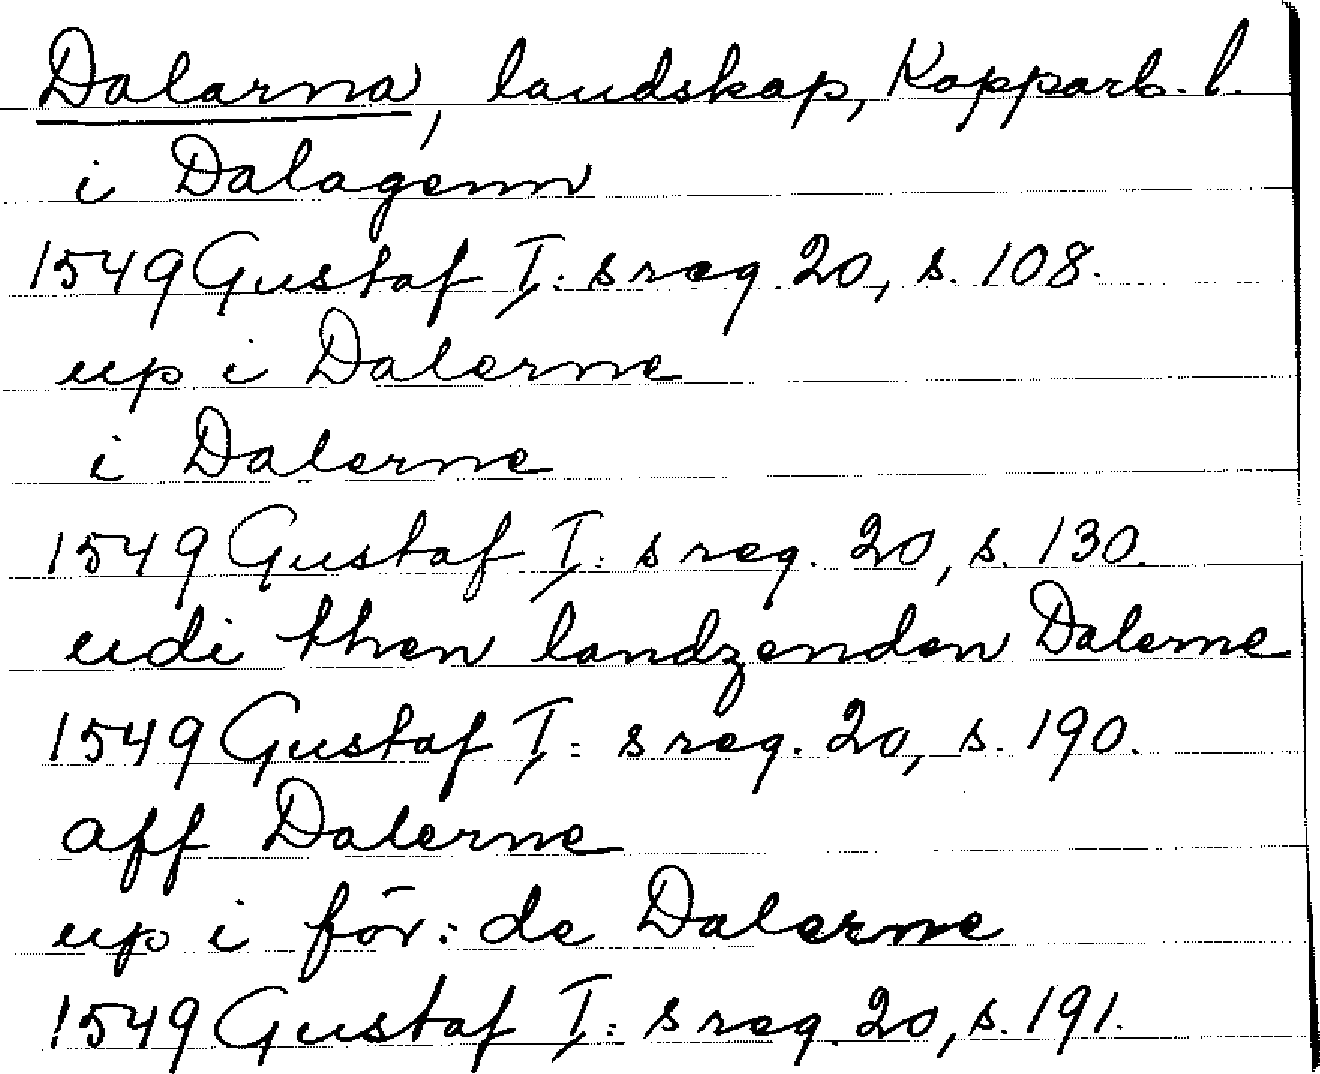 Dalarna, landskap, Kopparb. l.
i Dalagenn
1549 Gustaf I: s reg. 20, s. 108.
up i Dalerne
i Dalerne
1549 Gustaf I: s reg. 20, s. 130.
udi then landzenden Dalerne
1549 Gustaf I: s reg. 20, s. 190.
aff Dalerne
up i för: de Dalerne
1549 Gustaf I: s reg. 20, s. 191.